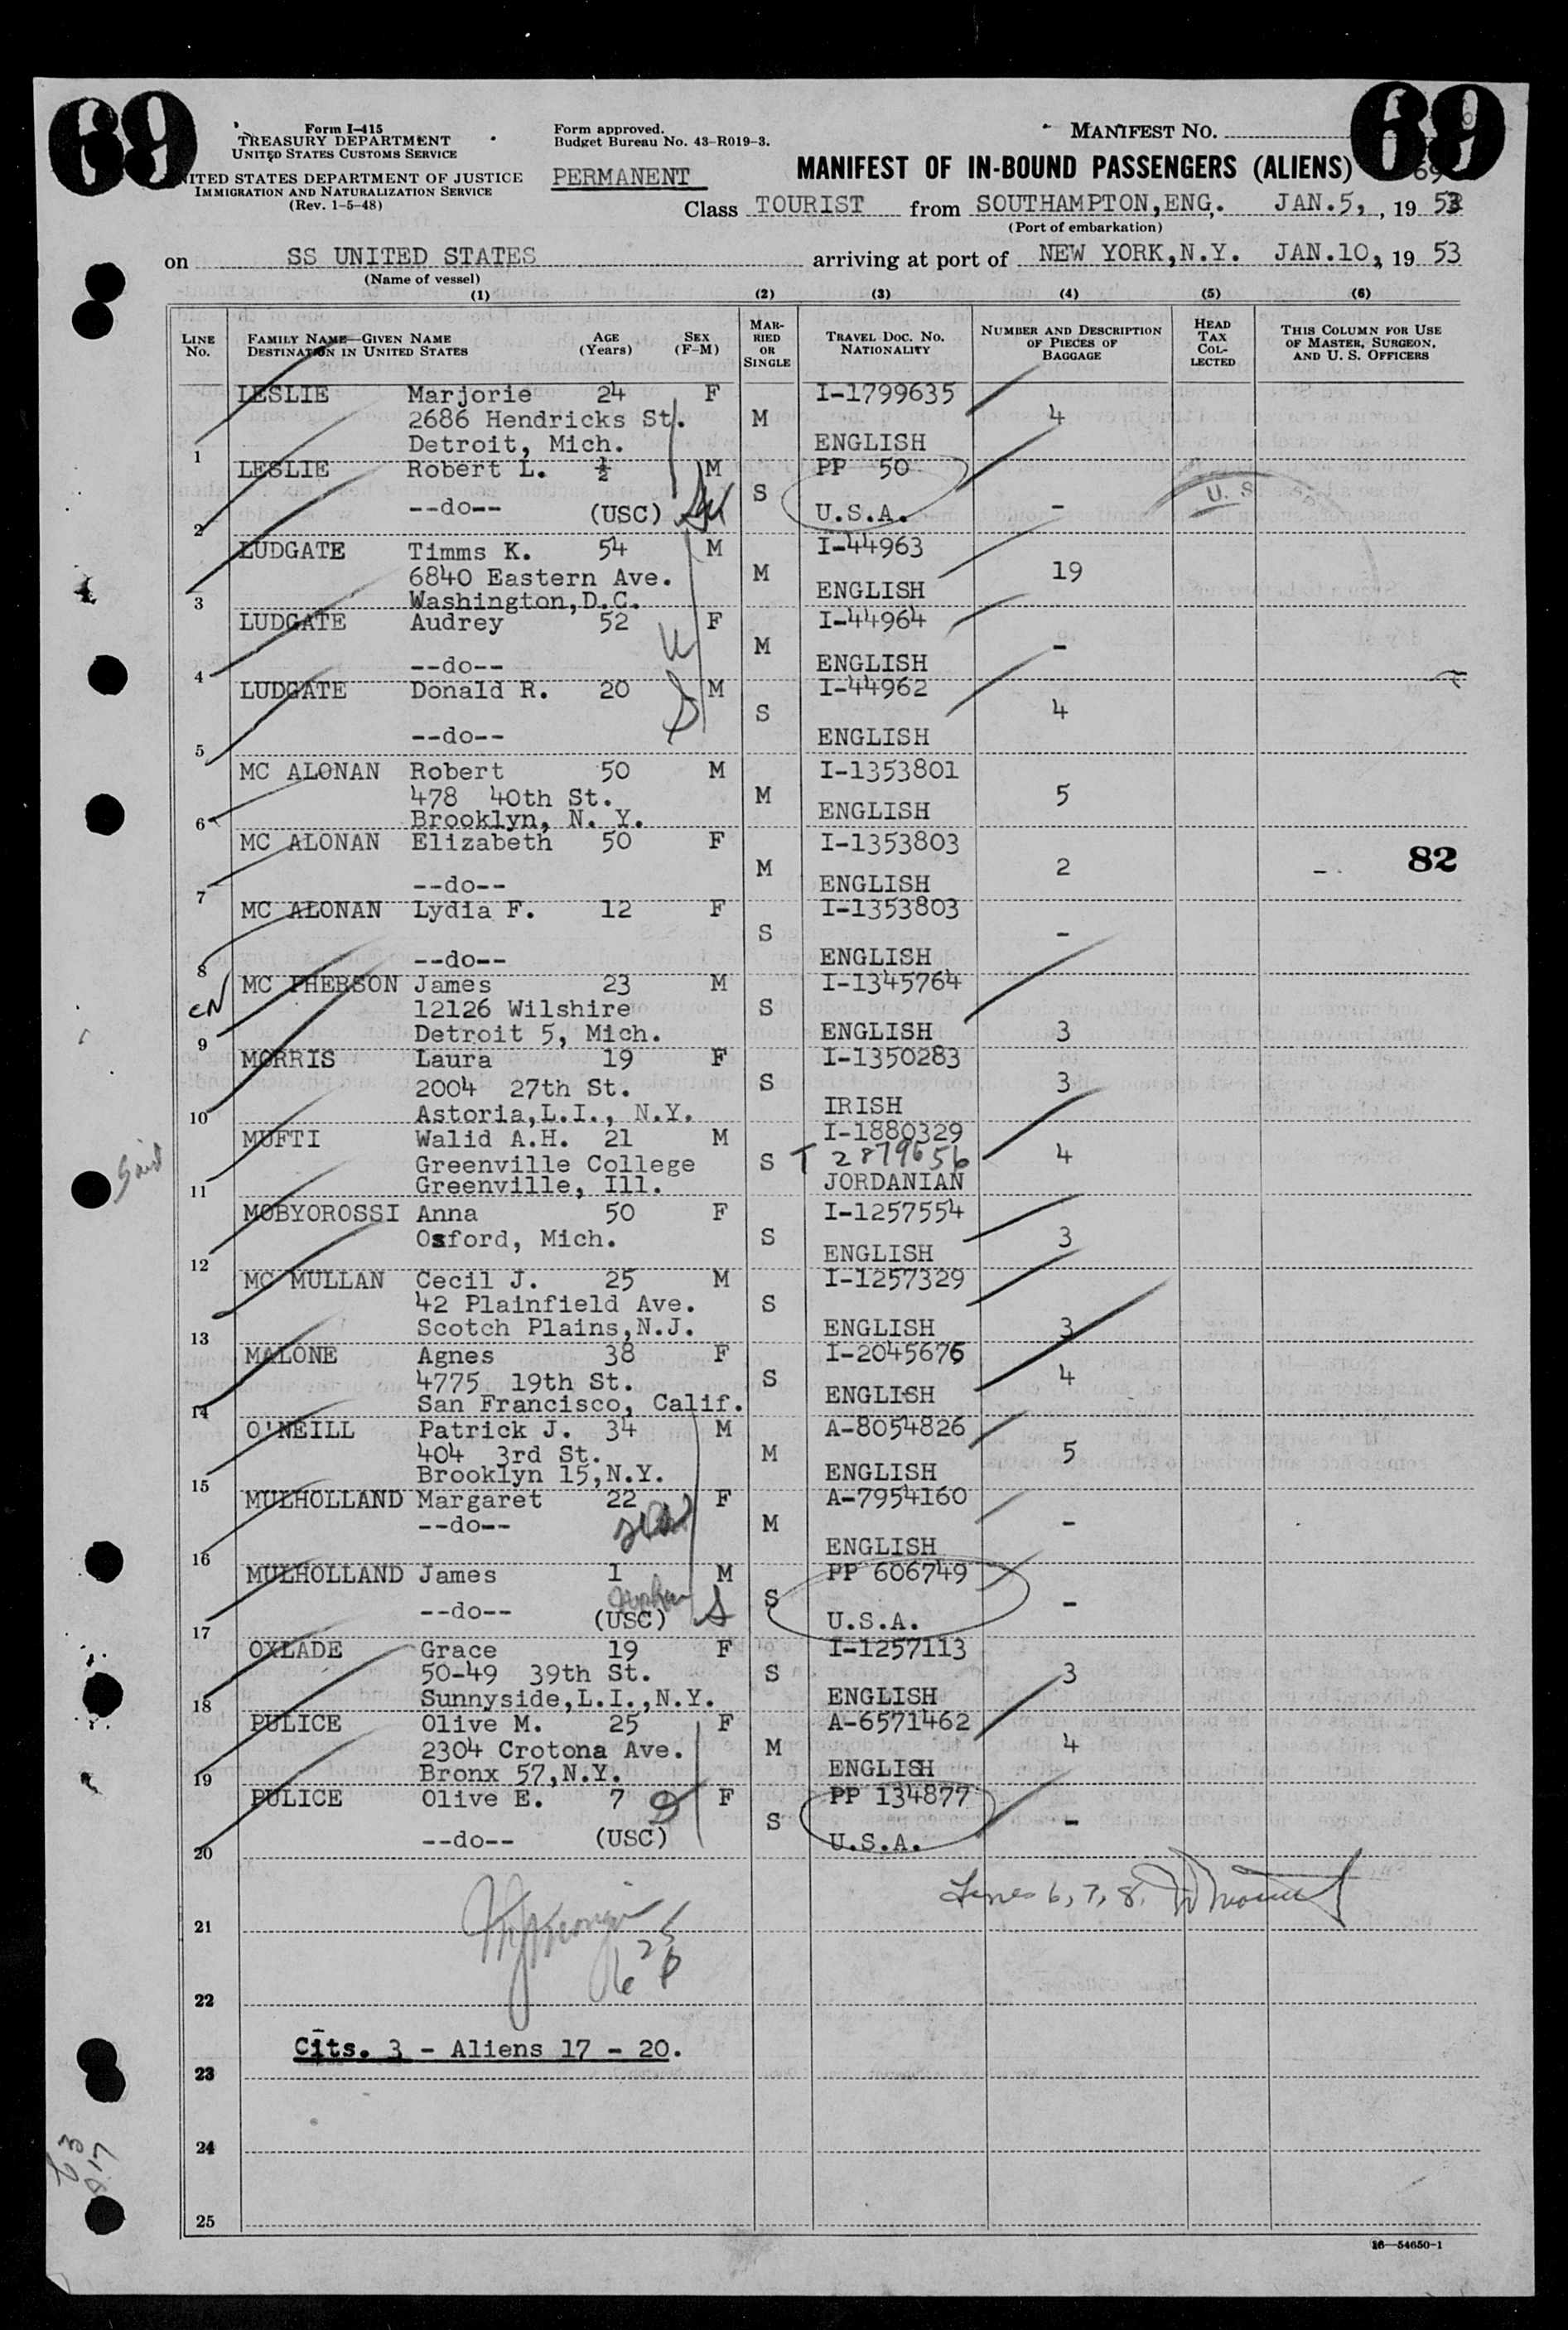 69
69
Form I-415
TREASURY DEPARTMENT
UNITED STATES CUSTOMS SERVICE
ITED STATES DEPARTMENT OF JUSTICE
IMMIGRATION AND NATURALIZATION SERVICE
(Rev. 1-5-48)
Form approved.
Budget Bureau No. 43-R019-3.
PERMANENT
MANIFEST NO.
MANIFEST OF IN-BOUND PASSENGERS (ALIENS)
Class TOURIST from SOUTHAMPTON,ENG. JAN.5, , 19 53
(Port of embarkation)
on SS UNITED STATES arriving at port of NEW YORK,N.Y. JAN.10, 19 53
(Name of vessel)
(1) (2) (3) (4) (5) (6)
LINE No. FAMILY NAME—GIVEN NAME DESTINATION IN UNITED STATES AGE (Years) SEX (F-M) MARRIED OR SINGLE TRAVEL DOC. NO. NATIONALITY NUMBER AND DESCRIPTION OF PIECES OF BAGGAGE HEAD TAX COLLECTED THIS COLUMN FOR USE OF MASTER, SURGEON, AND U. S. OFFICERS
LESLIE Marjorie 24 F I-1799635
2686 Hendricks St. M 4
1 Detroit, Mich. ENGLISH
LESLIE Robert L. ½ M PP 50
S U. S.
2 --do-- (USC) U.S.A. -
LUDGATE Timms K. 54 M I-44963
6840 Eastern Ave. M ENGLISH 19
3 Washington,D.C.
LUDGATE Audrey 52 F I-44964
M -
4 --do-- ENGLISH
LUDGATE Donald R. 20 M I-44962
S 4
5 --do-- ENGLISH
MC ALONAN Robert 50 M I-1353801
478 40th St. M ENGLISH 5
6 Brooklyn, N. Y.
MC ALONAN Elizabeth 50 F I-1353803
M 2 - 82
7 --do-- ENGLISH
MC ALONAN Lydia F. 12 F I-1353803
S -
8 --do-- ENGLISH
MC PHERSON James 23 M I-1345764
12126 Wilshire S
9 Detroit 5, Mich. ENGLISH 3
MORRIS Laura 19 F I-1350283
2004 27th St. S 3
10 Astoria,L.I., N.Y. IRISH
MUFTI Walid A.H. 21 M I-1880329
Greenville College S T 2879656 4
11 Greenville, Ill. JORDANIAN
MOBYOROSSI Anna 50 F I-1257554
Osford, Mich. S 3
12 ENGLISH
MC MULLAN Cecil J. 25 M I-1257329
42 Plainfield Ave. S
13 Scotch Plains,N.J. ENGLISH 3
MALONE Agnes 38 F I-2045676
4775 19th St. S ENGLISH 4
14 San Francisco, Calif.
O'NEILL Patrick J. 34 M A-8054826
404 3rd St. M 5
15 Brooklyn 15,N.Y. ENGLISH
MULHOLLAND Margaret 22 F A-7954160
--do-- M -
16 ENGLISH
MULHOLLAND James 1 M PP 606749
S -
17 --do-- (USC) U.S.A.
OXLADE Grace 19 F I-1257113
50-49 39th St. S 3
18 Sunnyside,L.I.,N.Y. ENGLISH
PULICE Olive M. 25 F A-6571462
2304 Crotona Ave. M 4
19 Bronx 57,N.Y. ENGLISH
PULICE Olive E. 7 F PP 134877
S -
20 --do-- (USC) U.S.A.
Lines 6, 7, 8.
21
22
Cits. 3 - Aliens 17 - 20.
23
24
25
16—54650-1